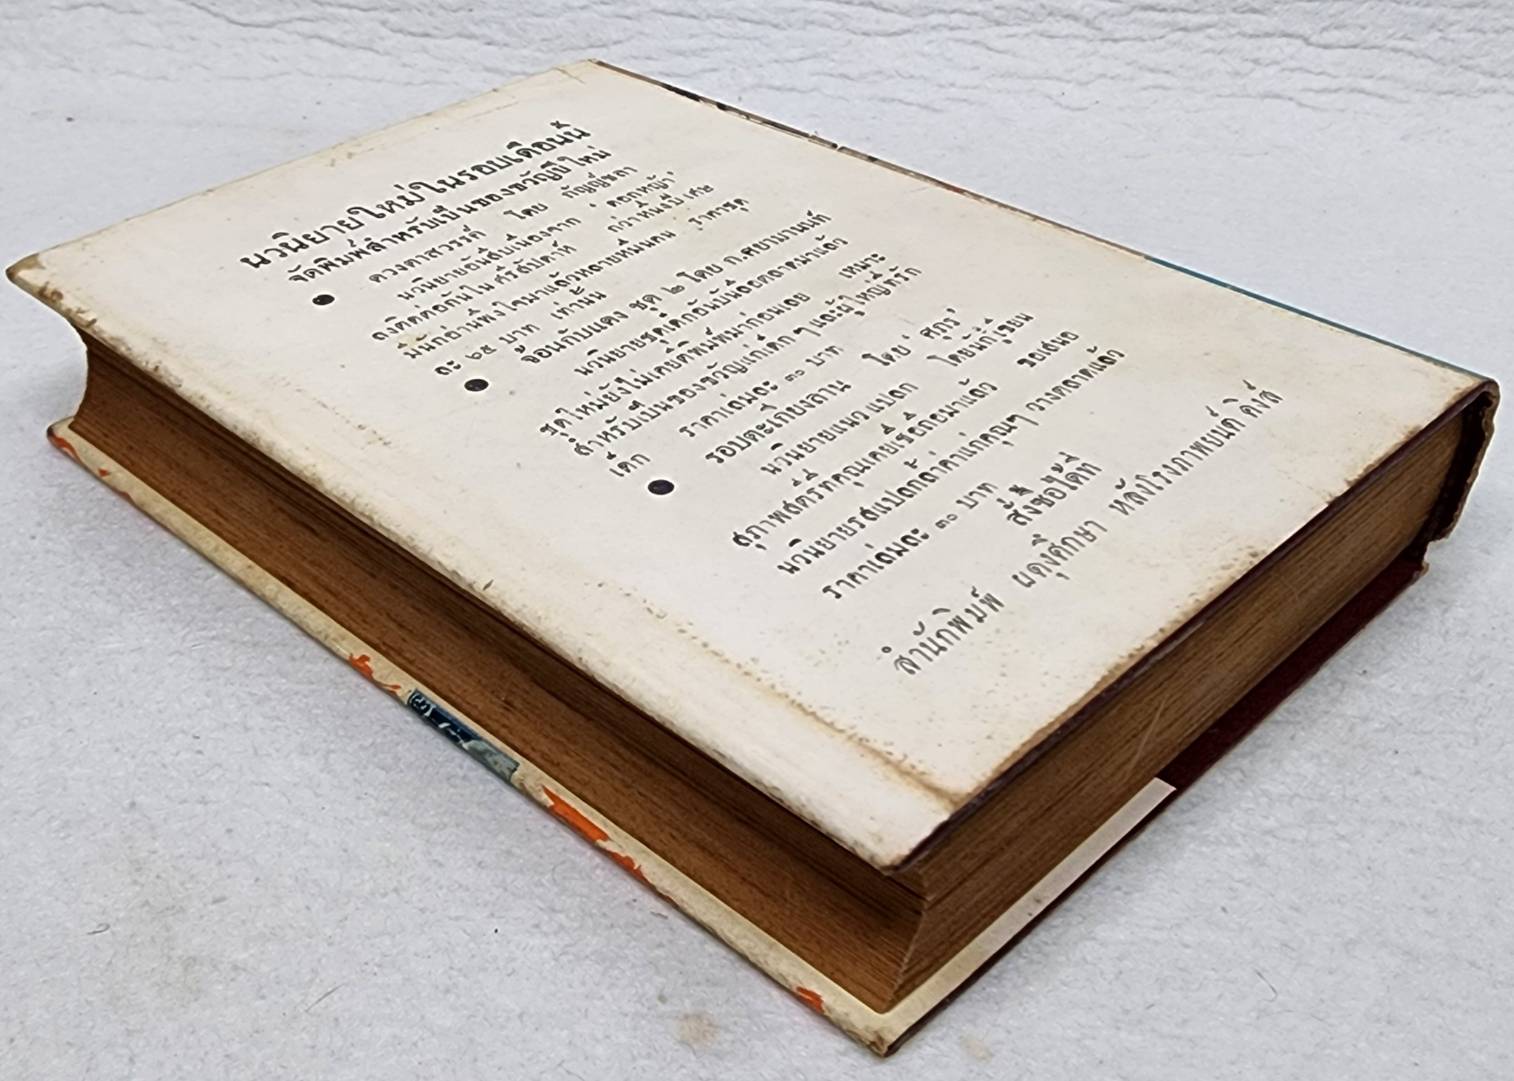 นวนิยายใหม่ในรอบเดือนนี้
จัดพิมพ์สำหรับเป็นของขวัญปีใหม่
● ดวงตาสวรรค์ โดย กัญญ์ชลา
นวนิยายอันสืบเนื่องจาก 'ดอกหญ้า'
ลงติดต่อกันใน ศรีสัปดาห์ กว่าหนึ่งปี เศษ
มีนักอ่านพึงใจมาแล้วหลายหมื่นคน ราคาชุด
ละ ๖๕ บาท เท่านั้น
● จ้อนกับแดง ชุด ๒ โดย ก.ศยามานนท์
นวนิยายชุดเด็กอันบันลือตลาดมาแล้ว
ชุดใหม่ยังไม่เคยตีพิมพ์มาก่อนเลย เหมาะ
สำหรับเป็นของขวัญแก่เด็กๆ และผู้ใหญ่ที่รัก
เด็ก ราคาเล่มละ ๓๐ บาท
● รอบตะเกียงลาน โดย 'ศุภร'
นวนิยายแนวแปลก โดยนักเขียน
สุภาพสตรีที่คุณเคยเชื่อถือมาแล้ว ขอเสนอ
นวนิยายรสแปลกล้ำค่าแก่คุณๆ วางตลาดแล้ว
ราคาเล่มละ ๓๐ บาท
สั่งซื้อได้ที่
สำนักพิมพ์ ผดุงศึกษา หลังโรงภาพยนต์ คิงส์